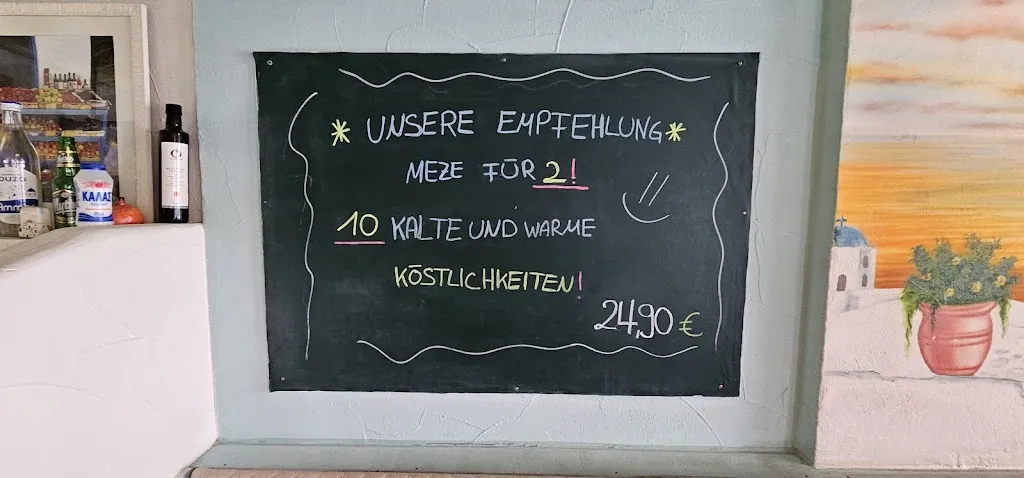 * UNSERE EMPFEHLUNG *
MEZE FÜR 2!
10 KALTE UND WARME
KÖSTLICHKEITEN!
24,90 €
ΚΑΛΑΣ